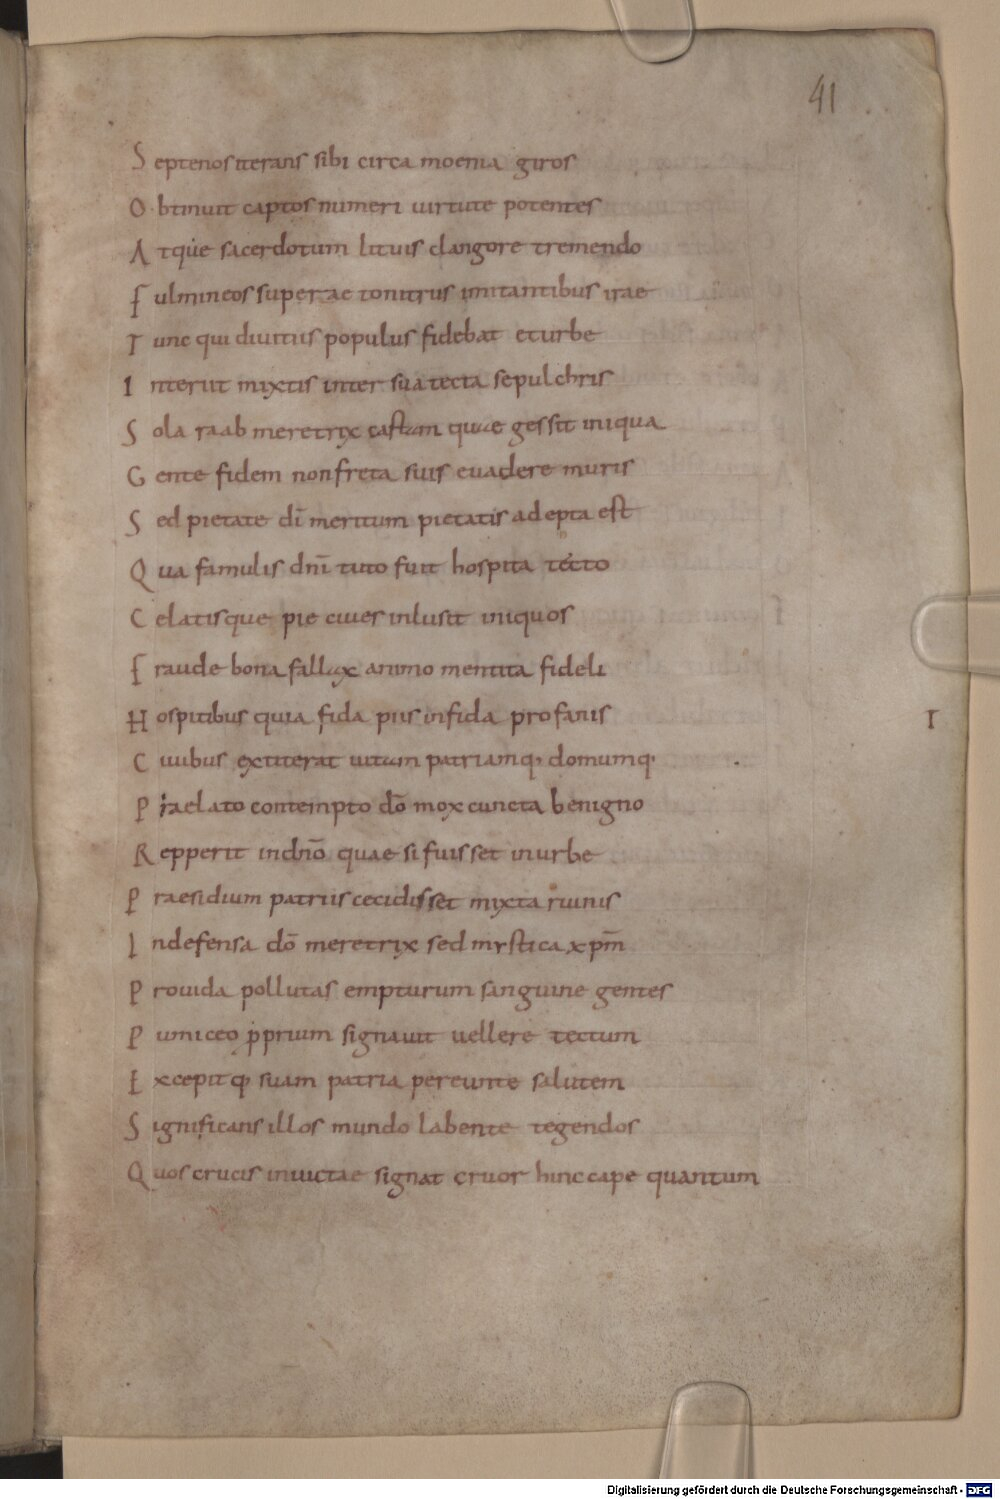 41
Septenos iterans sibi circa moenia giros
Obtinuit captos numeri uirtute potentes
Atque sacerdotum lituis clangore tremendo
Fulmineos superae tonitrus imitantibus irae
Tunc qui diuitiis populus fidebat et urbe
Interiit mixtis inter sua tecta sepulchris
Sola raab meretrix castam quae gessit iniqua
Gente fidem non freta suis euadere muris
Sed pietate dī meritum pietatis adepta est
Qua famulis dnī tuto fuit hospita tecto
Celatisque pie ciues inlusit iniquos
Fraude bona fallax animo mentita fideli
Hospitibus quia fida piis infida profanis
Ciuibus extiterat uitam patriamq; domumq;
Praelato contempto dō mox cuncta benigno
Repperit in dnō quae si fuisset in urbe
Praesidium patriis cecidisset mixta ruinis
Indefensa dō meretrix sed mystica xpm̄
Prouida pollutas empturum sanguine gentes
Puniceo ꝓprium signauit uellere tectum
Excepitq; suam patria pereunte salutem
Significans illos mundo labente tegendos
Quos crucis inuictae signat cruor hinc cape quantum
T
Digitalisierung gefördert durch die Deutsche Forschungsgemeinschaft - DFG